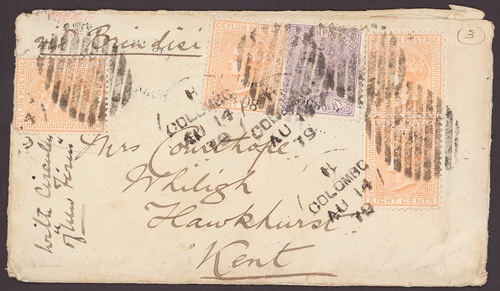 via Brindisi
CEYLON POSTAGE
POSTAGE
H
COLOMBO
AU 14
79
COLOMBO
AU 14
79
H
COLOMBO
AU 14
79
EIGHT CENTS
Mrs Courthope
Whiligh
Hawkhurst
Kent
with Circular
of New Firm
3